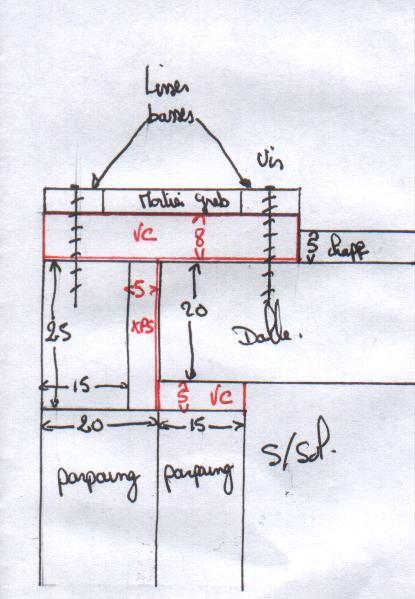 Lisses
basses
Vis
Mortier greb
VC
8
5
chappe
5
XPS
20
25
Dalle.
15
5
VC
20
15
S/Sol.
parpaing
parpaing